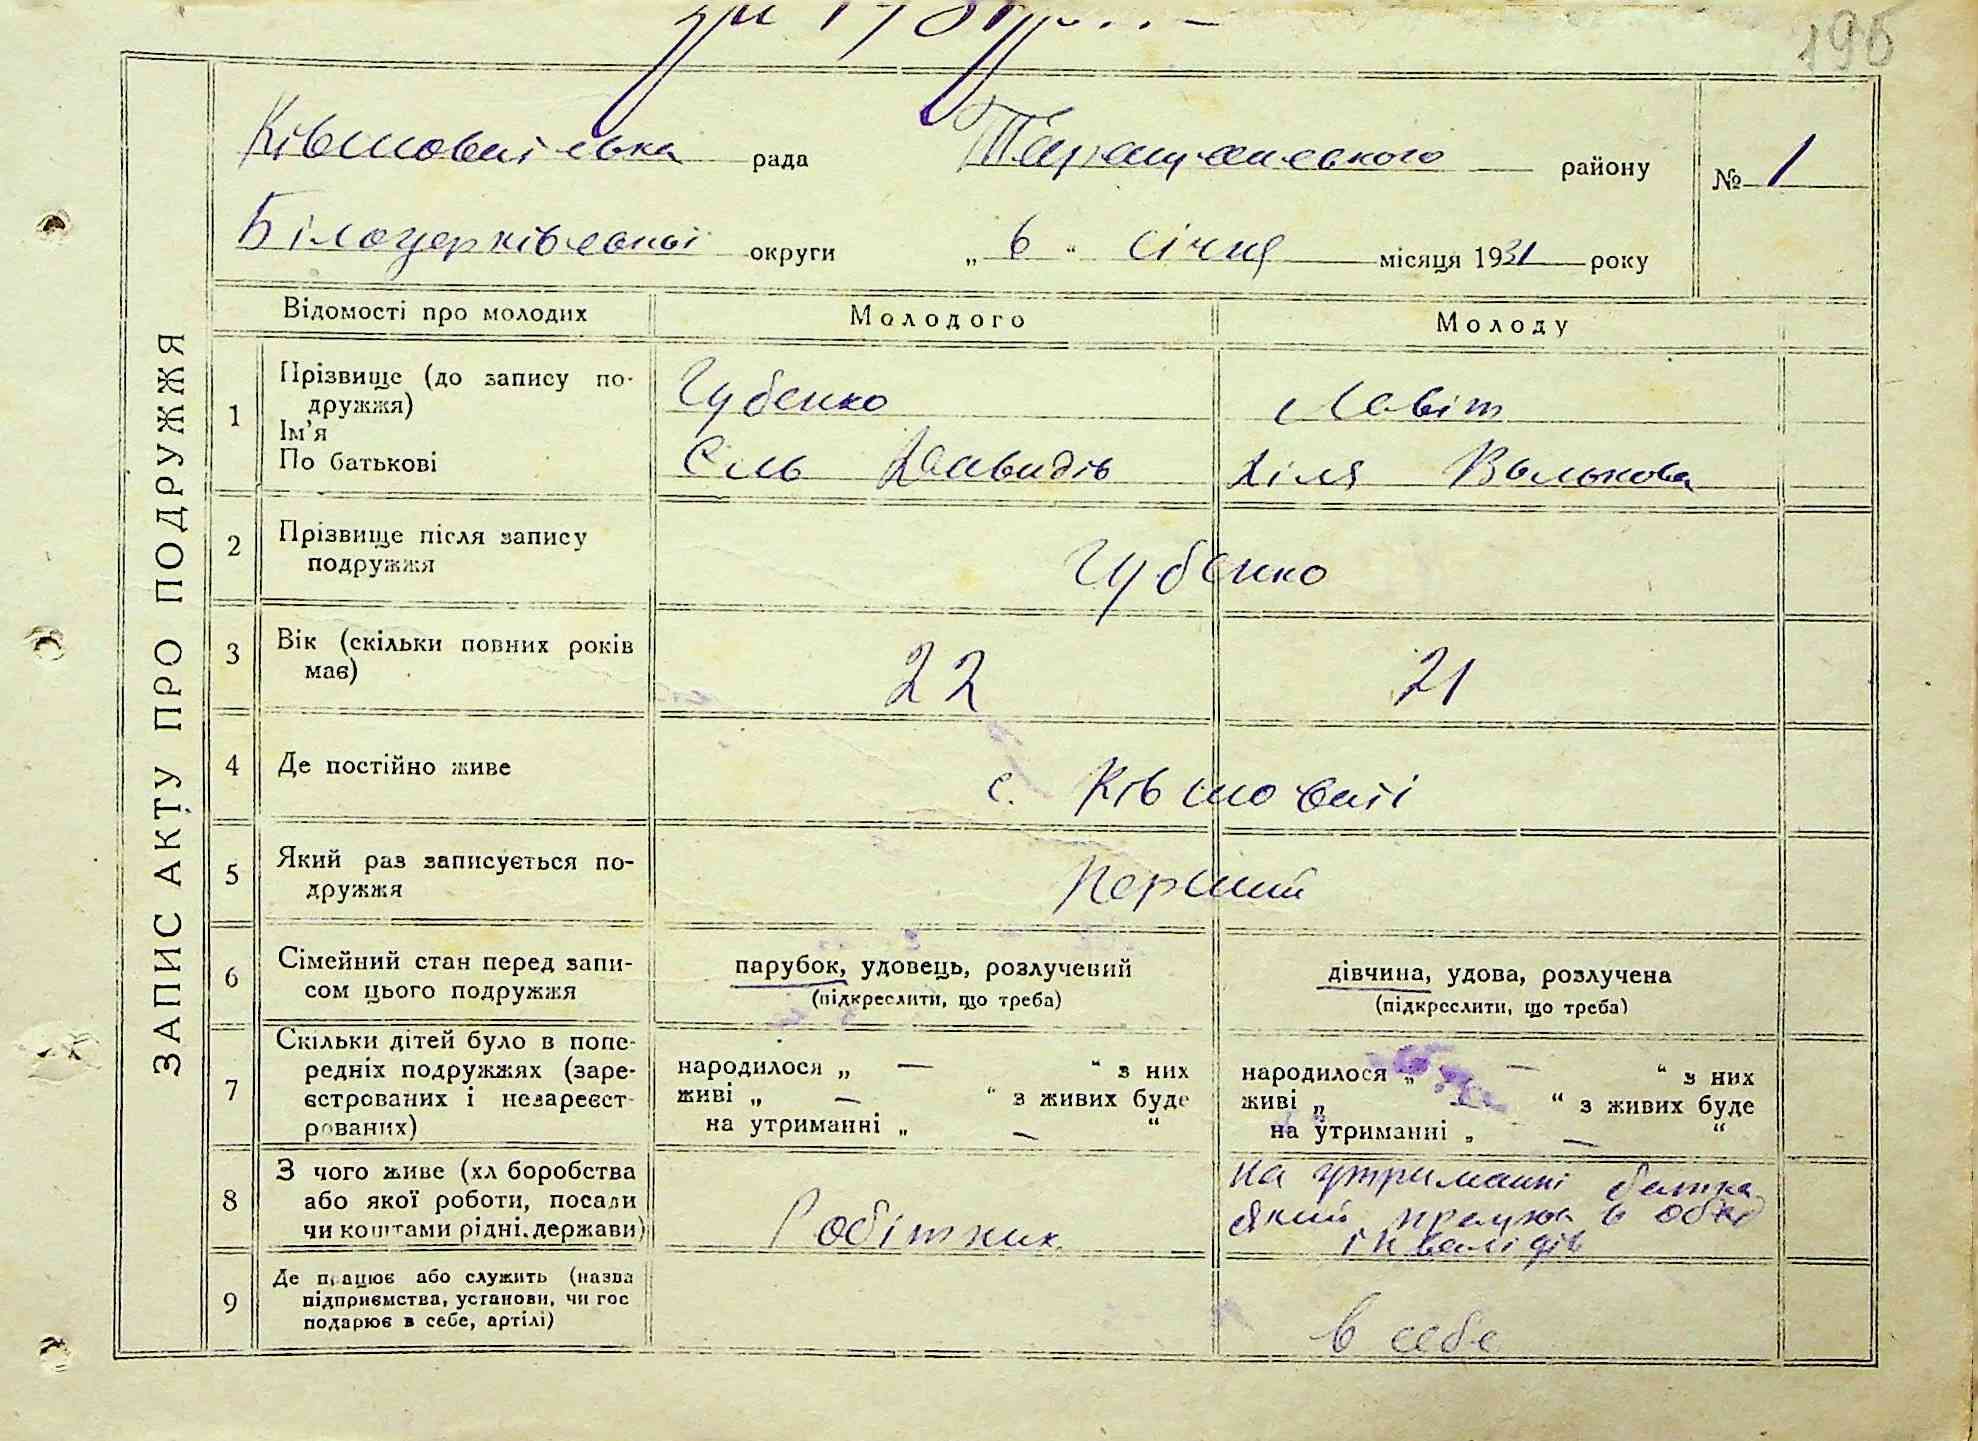 196
ЗАПИС АКТУ ПРО ПОДРУЖЖЯ
Ківшоватська рада Таращанського району № 1
Білоцерківської округи „ 6 “ січня місяця 1931 року
Відомості про молодих Молодого Молоду
1 Прізвище (до запису по-
дружжя)
Губенко Ловіт
Ім'я
По батькові
Єль Давидів Хіля Валькова
2 Прізвище після запису
подружжя
Губенко
3 Вік (скільки повних років
має)
22 21
4 Де постійно живе
с. Ківшоваті
5 Який раз записується по-
дружжя
Перший
6 Сімейний стан перед запи-
сом цього подружжя
парубок, удовець, розлучений дівчина, удова, розлучена
(підкреслити, що треба) (підкреслити, що треба)
7 Скільки дітей було в попе-
редніх подружжях (заре-
єстрованих і незареєст-
рованих)
народилося „ — “ з них народилося „ — “ з них
живі „ — “ з живих буде живі „ — “ з живих буде
на утриманні „ — “ на утриманні „ — “
8 З чого живе (хл боробства
або якої роботи, посади
чи коштами рідні, держави)
Робітник
на утриманні батька
який працює в
інвалідів
9 Де працює або служить (назва
підприємства, установи, чи гос
подарює в себе, артілі)
в себе